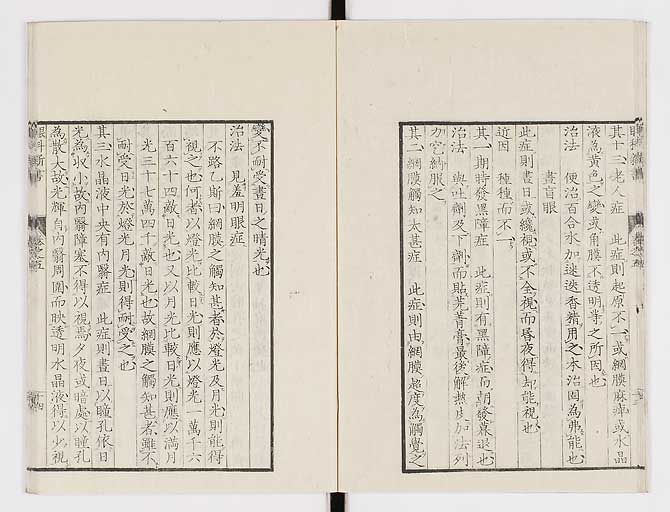 其十三老人症　此症則起原不一或網膜麻痺或水晶
液爲黄色之變或角膜不透明等之所因也
治法　便治百合水加迷迭香精用之本治固爲弗能也
晝盲眼
此症則晝日或纔視或不全視而昏夜得却能視也
近因　種種而不一
其一期時發黒障症　此症則有黒障症而朝發暮退也
治法　與吐劑及下劑而貼芫菁膏最後解熱皮加法列
加窊納服之
其二網膜觸知太甚症　此症則由網膜超度爲觸覺之
變不耐受晝日之晴光也
治法　見羞明眼症
不路乙斯曰網膜之觸知甚者於燈光及月光則能得
視之也何者以燈光比較日光則應以燈光一萬千六
百六十四敵日光也又以月光比較日光則應以滿月
光三十七萬四千敵日光也故網膜之觸知甚者雖不
耐受日光於燈光月光則得耐受之也
其三水晶液中央有内翳症　此症則晝日以瞳孔依日
光爲收小故内翳障塞不得以視焉夕夜或暗處以瞳孔
爲散大故光輝自内翳周圍而映透明水晶液得以少視
眼科新書
卷之五